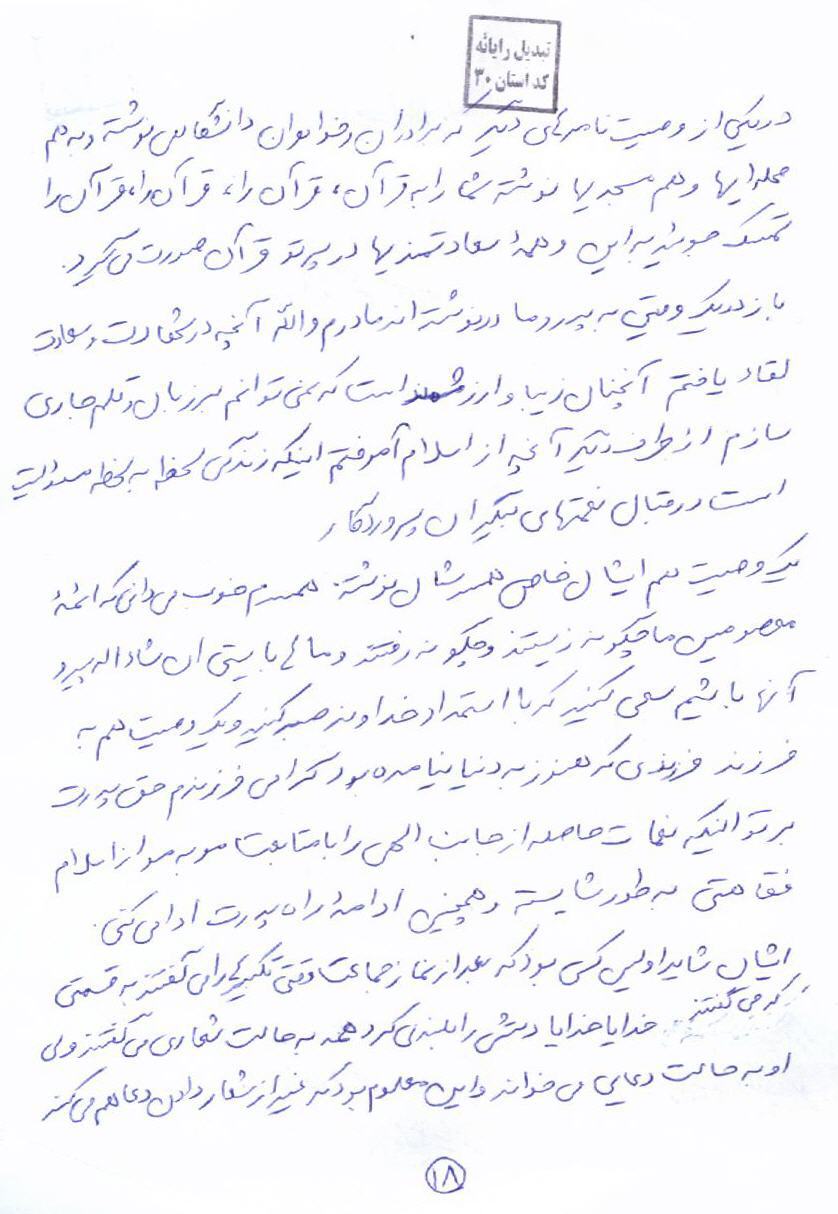 تبدیل رایانه
کد استان ۳۰
در یکی از وصیت نامه‌های دیگر که برادران و خواهران دانشگاهی نوشته و به هم
محله‌ایها و هم مسجدیها نوشته شما را به قرآن، قرآن را، قرآن را، قرآن را
تمسک جوئید به این و همهٔ سعادتمندیها در پرتو قرآن صورت می‌گیرد.
باز در یک وصیتی به پدر و مادر نوشته‌اند مادرم والله آنچه در شهادت و سعادت
لقاء یافتم آنچنان زیبا و ارزشمند است که نمی‌توانم بر زبان و قلم جاری
سازم از طرف دیگر آنچه از اسلام آموختم اینکه زندگی لحظه به لحظه مسئولیت
است در قبال نعمتهای بیکران پروردگار
یک وصیت هم ایشان خاص همسرشان نوشته. همسرم خوب می‌دانی که ائمهٔ
معصومین ما چگونه زیستند و چگونه رفتند و ما بایستی ان شاء اله پیرو
آنها باشیم سعی کنید که با استمداد خداوند صبر کنید و یک وصیت هم به
فرزند که هنوز به دنیا نیامده بود گرامی فرزندم حق پدرت
بر تو اینکه نعمات حاصله از جانب الهی را با متابعت مو به مو از اسلام
فقاهتی به طور شایسته و همچنین ادامهٔ راه پدرت ادا می کنی.
ایشان شاید اولین کسی بود که بعد از نماز جماعت وقتی تکبیر را می گفتند به قسمتی
که می گفتند خدایا خدایا دستش را بلند می کرد همه به حالت شعاری می گفتند ولی
او به حالت دعایی می خواند و این معلوم بود که غیر از شعار دادن دعا هم می کند
۱۸